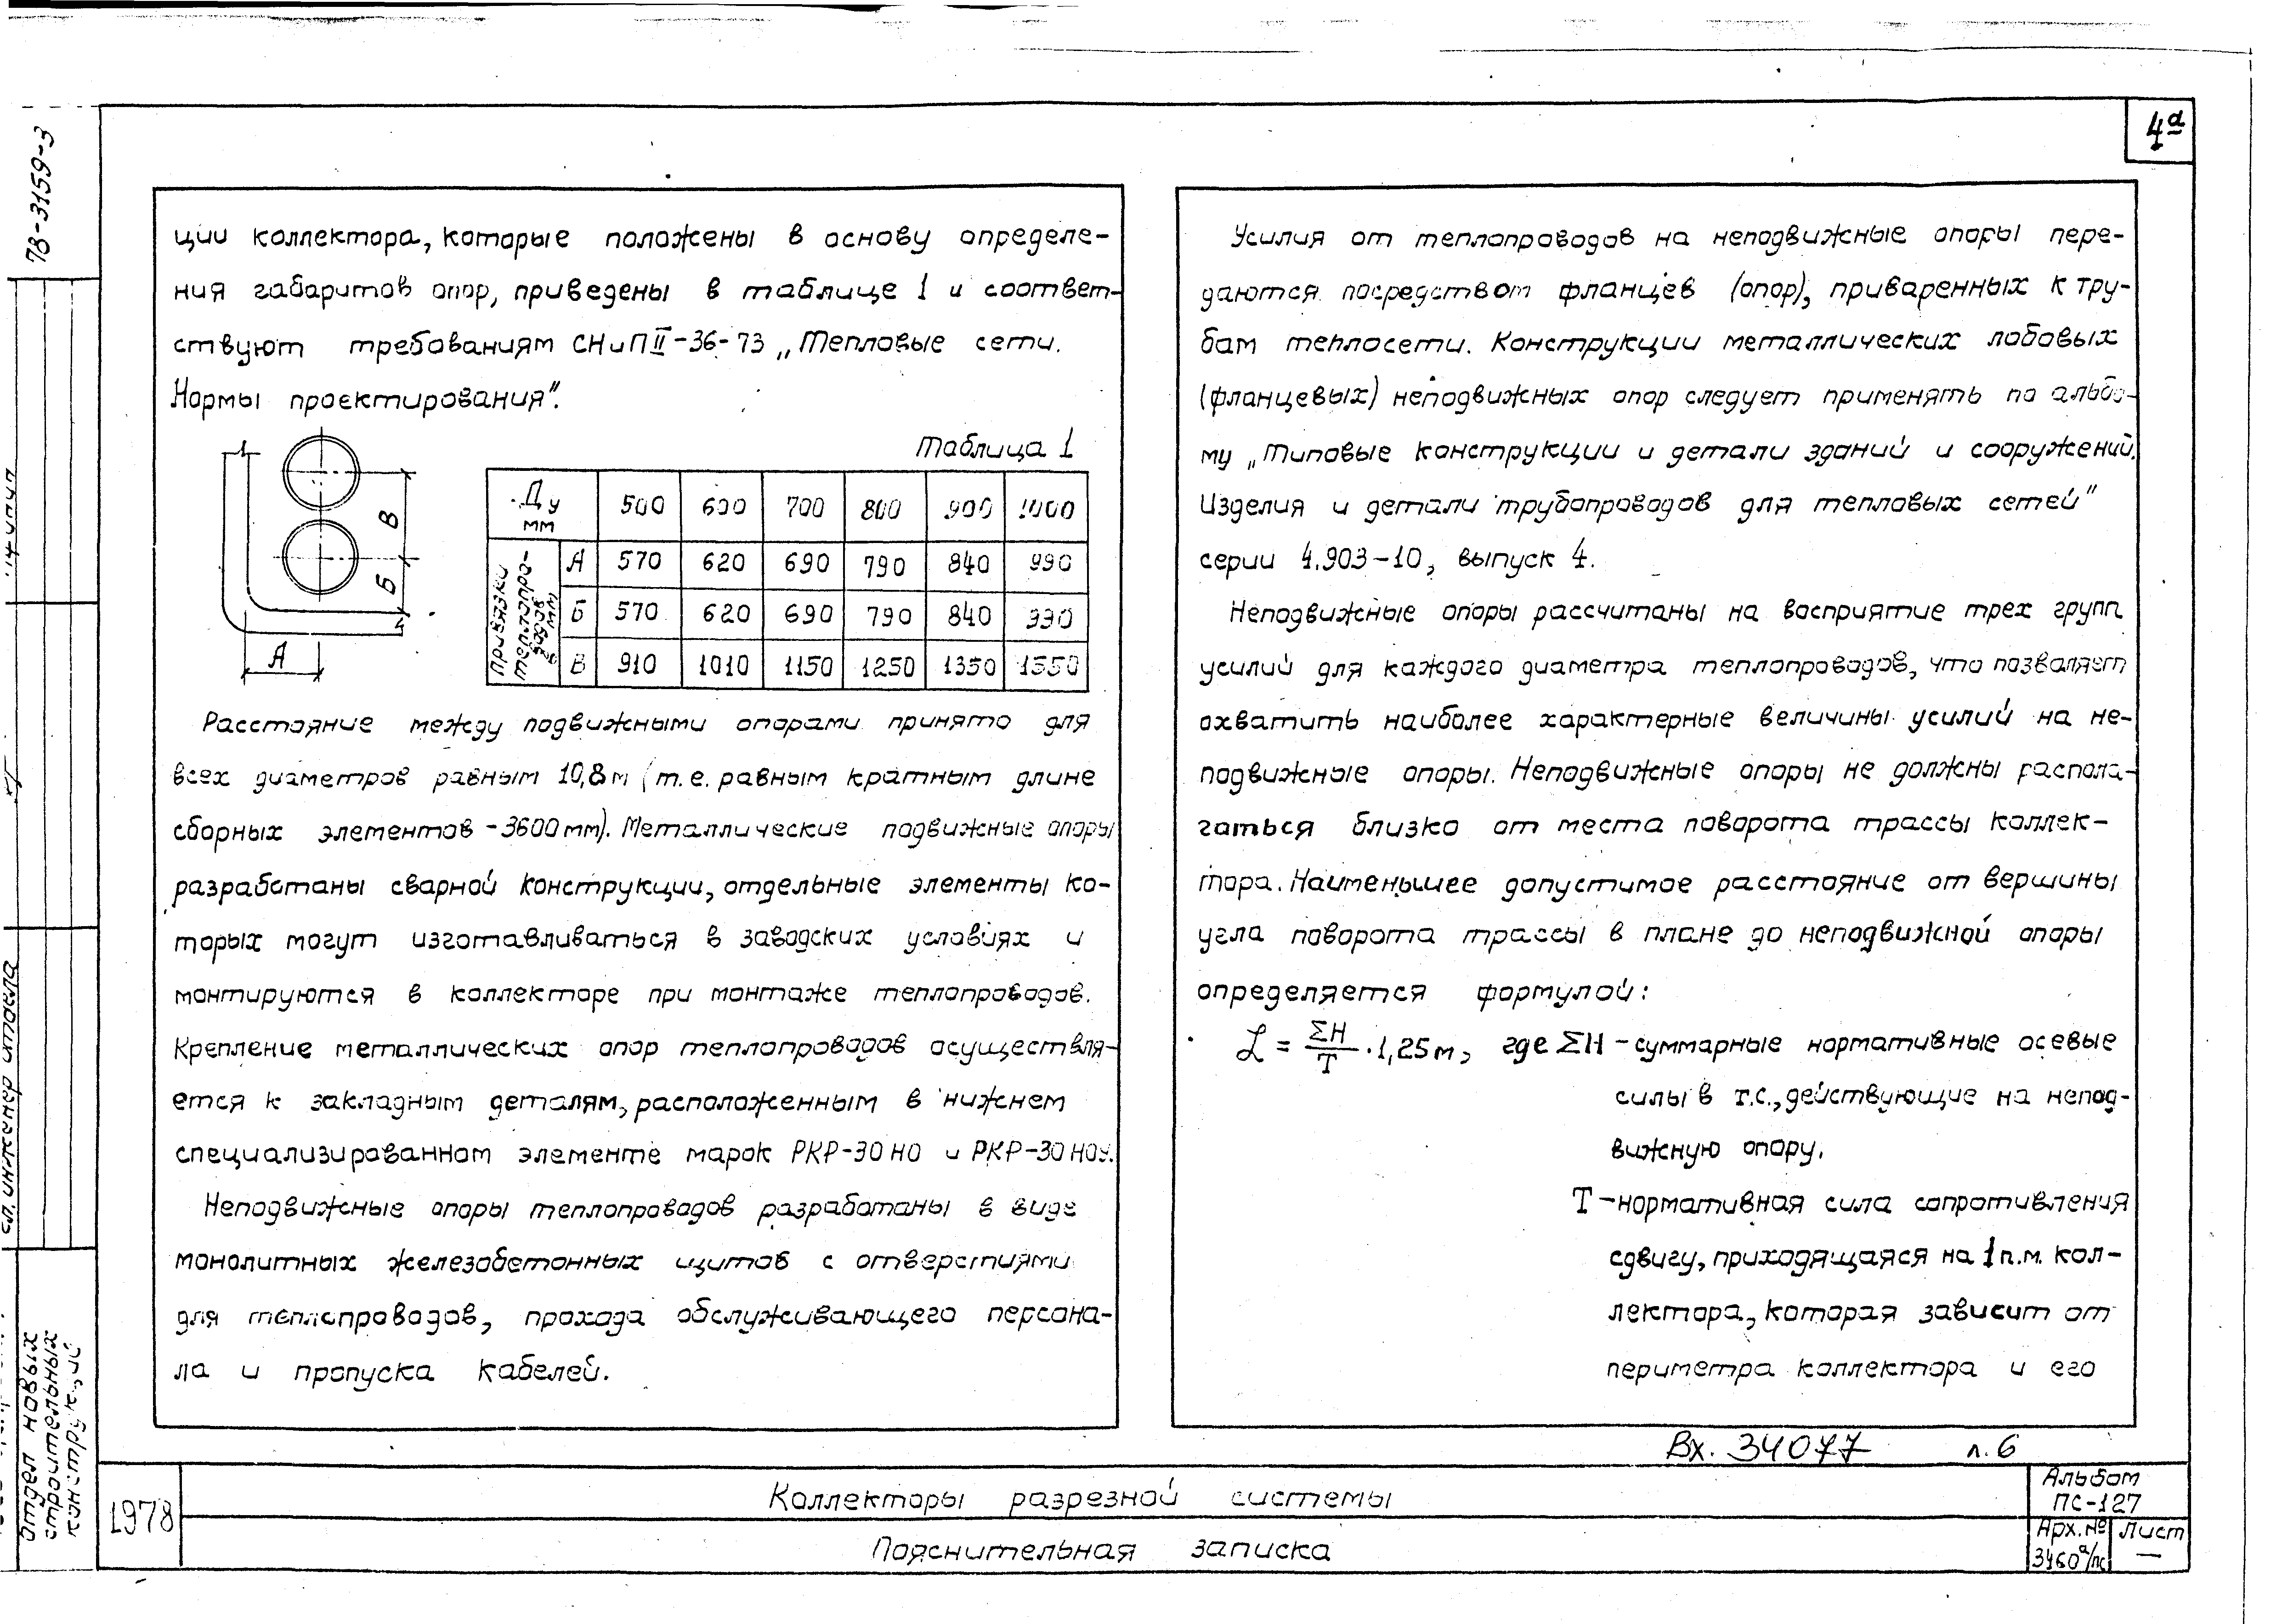 4а
78-3159-3
ции коллектора, которые положены в основу определе-
ния габаритов опор, приведены в таблице 1 и соответ-
ствуют требованиям СНиП II-36-73 „Тепловые сети.
Нормы проектирования".
Таблица 1
В
Б
А
Ду мм 500 600 700 800 900 1000
Привязки теплопро- водов в мм
А 570 620 690 790 840 990
Б 570 620 690 790 840 990
В 910 1010 1150 1250 1350 1550
Расстояние между подвижными опорами принято для
всех диаметров равным 10,8м (т.е. равным кратным длине
сборных элементов - 3600мм). Металлические подвижные опоры
разработаны сварной конструкции, отдельные элементы ко-
торых могут изготавливаться в заводских условиях и
монтируются в коллекторе при монтаже теплопроводов.
Крепление металлических опор теплопроводов осуществля-
ется к закладным деталям, расположенным в нижнем
специализированном элементе марок РКР-30НО и РКР-30НОУ.
Неподвижные опоры теплопроводов разработаны в виде
монолитных железобетонных щитов с отверстиями
для теплопроводов, прохода обслуживающего персона-
ла и пропуска кабелей.
Усилия от теплопроводов на неподвижные опоры пере-
даются посредством фланцев (опор), приваренных к тру-
бам теплосети. Конструкции металлических лобовых
(фланцевых) неподвижных опор следует применять по альбо-
му „Типовые конструкции и детали зданий и сооружений.
Изделия и детали трубопроводов для тепловых сетей"
серии 4.903-10, выпуск 4.
Неподвижные опоры рассчитаны на восприятие трех групп
усилий для каждого диаметра теплопроводов, что позваляет
охватить наиболее характерные величины усилий на не-
подвижные опоры. Неподвижные опоры не должны распола-
гаться близко от места поворота трассы коллек-
тора. Наименьшее допустимое расстояние от вершины
угла поворота трассы в плане до неподвижной опоры
определяется формулой:
L = ΣН/Т · 1,25м, где ΣН - суммарные нормативные осевые
силы в т.с., действующие на непод-
вижную опору.
Т - нормативная сила сопротивления
сдвигу, приходящаяся на 1п.м. кол-
лектора, которая зависит от
периметра коллектора и его
Вх. 34077 л.6
1978
Коллекторы разрезной системы
Пояснительная записка
Альбом
ПС-127
Арх.№ Лист
3460а/пс —
гл. инженер отдела
Отдел новых
строительных
конструкций